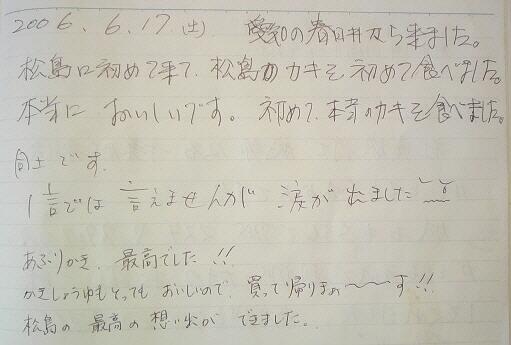 2006.6.17.(土) 愛知の春日井から来ました。
松島に初めて来て、松島のカキを初めて食べました。
本当に おいしいです。初めて、本当のカキを食べました。
同上です。
1言では 言えませんが 涙が出ました
あぶりかき、最高でした!!
かきしょうゆもとっても おいしいので、買って帰りまぁ〜〜す!!
松島の 最高の 想い出が できました。